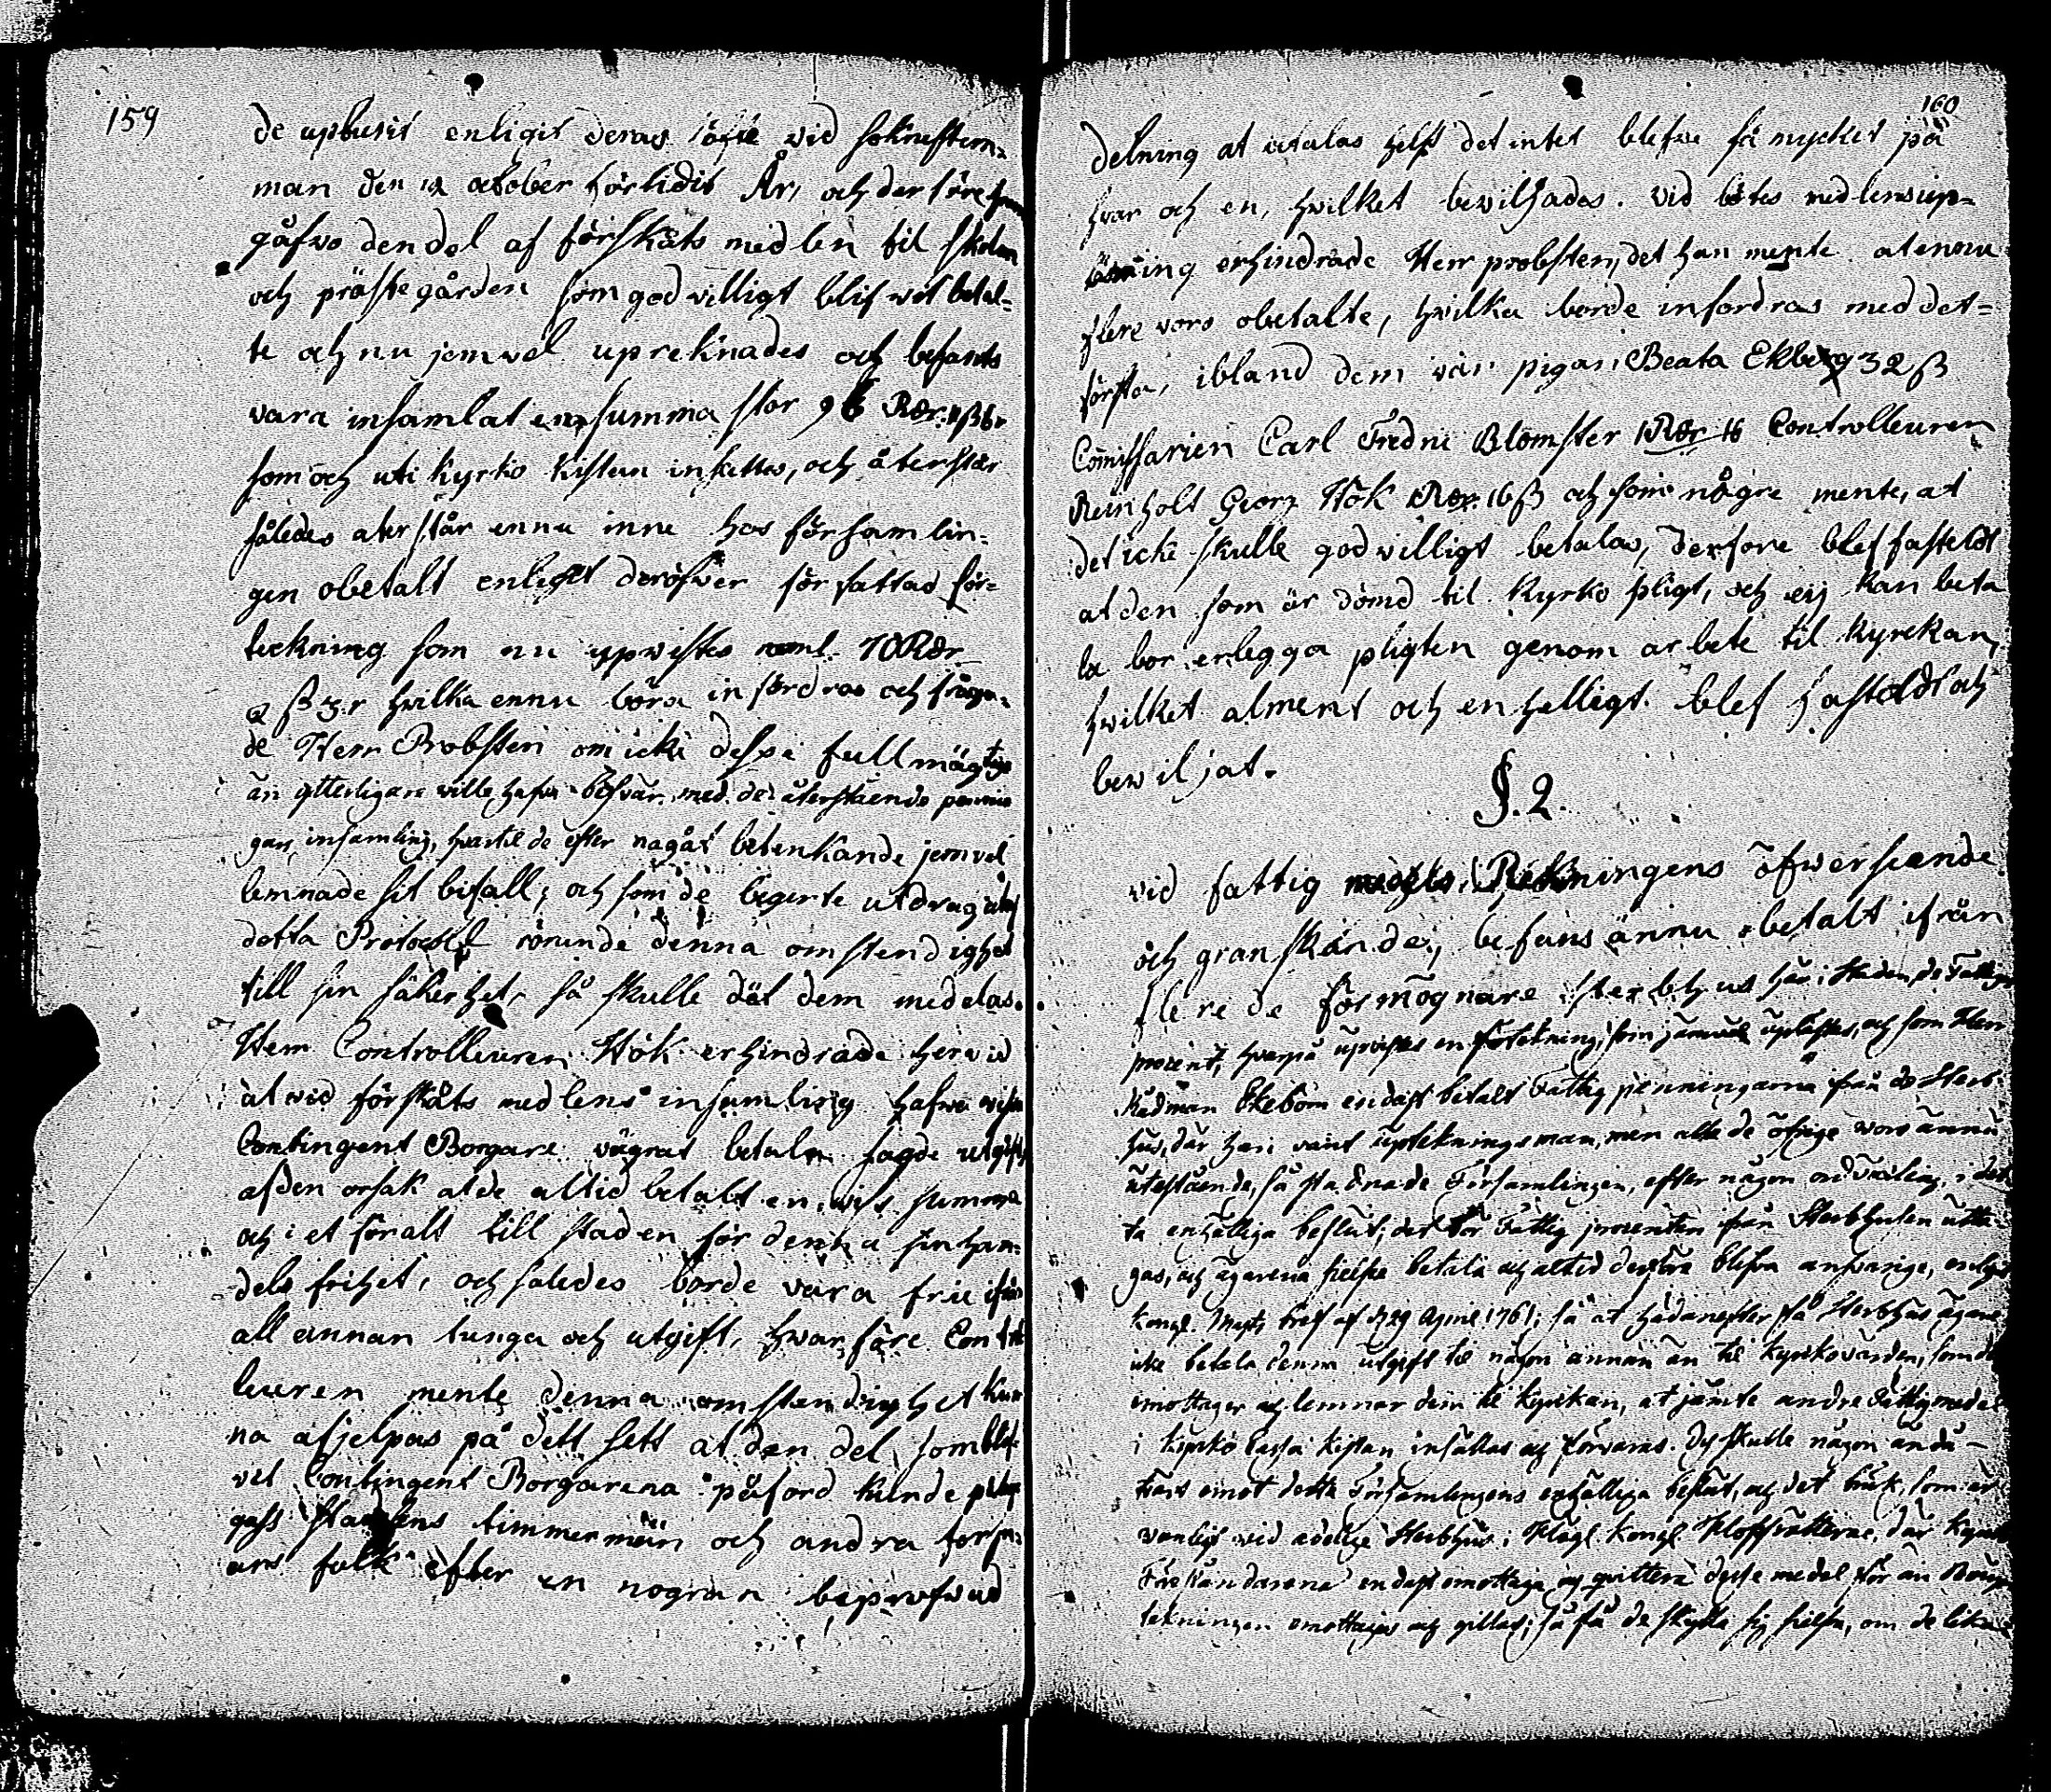 159
de upburit enligit deras löfte vid soknestem-
man den 12 october förlidit År, och der före
gåfwo den del af förskåts medlen til skolan
och prästegården som godvilligt blifwit betal-
te och nu jemvel upreknades och befants
vara insamlat en summa stor 96 Rdr
som och uti kyrko kistan insattes, och återstår
således aterstår ennu inne hos församlin-
gen obetalt enligit deröfwer författad för-
teckning som nu upwistes 70 Rdr
2 ß 3 r hwilka ennu böra infordras och fråga-
de Herr Probsten om icke dessa fullmägtige
än ytterligare wille hafwa besvär med de återstående pennin
gars insamling, hvartil de efter någåt betenkande jemvel
lemnade sit bifall; och som de begerte utdrag utaf
detta Protocoll rörande denna omstendighet
till sin säkerhet, så skulle dät dem medelas.
Herr Controlleuren Hök erhindrade hervid
at vid förskåts medlens insamling hafwa wissa
Contingent Borgare vägrat betala sagde utgift
af den orsak at de altid betalt en wiss summa
och i et för alt till staden för denna sin han-
dels frihet, och saledes borde vara frie ifrån
all annan tunga och utgift, hwarföre Contrl
leuren mente denna omstendighet kun
na afhjelpas på dett sett at den del som blif-
vit Contingent Borgarena påford kunde
stadens timmermän och andra
folk efter en nogran beprofwad
160
delning at betalas helst det intet blefve så mycket på
hvar och en, hwilket bewilhades. Vid botes medlens up-
erhindrade Herr probsten, det han mente at ennu
flere voro obetalte, hwilka borde infordras med det-
första, ibland dem vår pigan Beata Ekberg 32 ß
Commissarien Carl Fredric Blomster 1 Rdr 16 Controlleuren
Reinholt Georg Hök 1 Rdr 16 ß och som någre mente, at
det icke skulle godwilligt betalas, derfore blef fasteldt
at den som är dömd til kyrko pligt, och eij kan beta
la bor erlegga pligten genom arbete til kyrckan,
hwilket alment och enhelligt blef fasteldt och
bewiljat.
§. 2.
vid fattig medels Räkningens öfwerseende
och granskande, befans ännu obetalt ifrån
flere de förmögnare sterbhus här i staden, de Fattigas
procent, hvarpå upvistes en förtekning, som jämväl uplästes, och som Herr
Rådman Ekebom endast betalt Fattig penningarna från de Sterb-
hus, där han varit uptekningsman, men alla de öfrige woro ännu
utestående, så stadnade Församlingen, efter någon ordväxling, i det-
ta enhälliga beslut; det bör Fattig procenten från Sterbhusen utta-
gas, och ägarena sielfve betala och altid derföre blifva answarige, enligt
Kongl. Majts bref af d. 29 April 1761; så at hädanefter få Sterbhus ägare
icke betala denna utgift til någon annan än til kyrkovärden, som de
emottager och lemnar dem til kyrkan, at jämte andre Fattigmedel
i kyrko Cassa kistan insättas och förvaras. Dess skulle någon ändå
tvärt emot detta Församlingens enhälliga beslut, och det bruk, som är
vanligt vid adelige Sterbhus i Högl. Kongl. Hofrätterne, där kyrko
Föreståndarena endast emottaga och quittera desse medel för än Boup
tekningen emottages och gillas; så få de skylla sig sielfve, om de lika